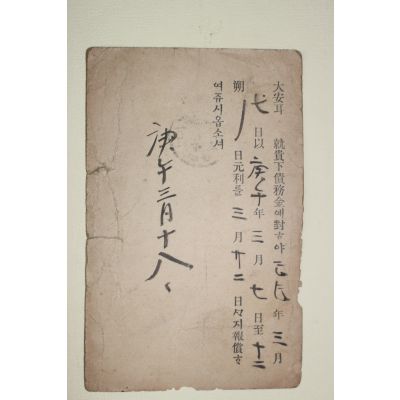 大安耳 就貴下債務金에對ᄒᆞ야 己巳年三月
七日以庚午年三月七日至十二
朔 日元利를三月廿二日ᄭᆞ지報償ᄒᆞ
여쥬시옵소셔
庚午三月十八